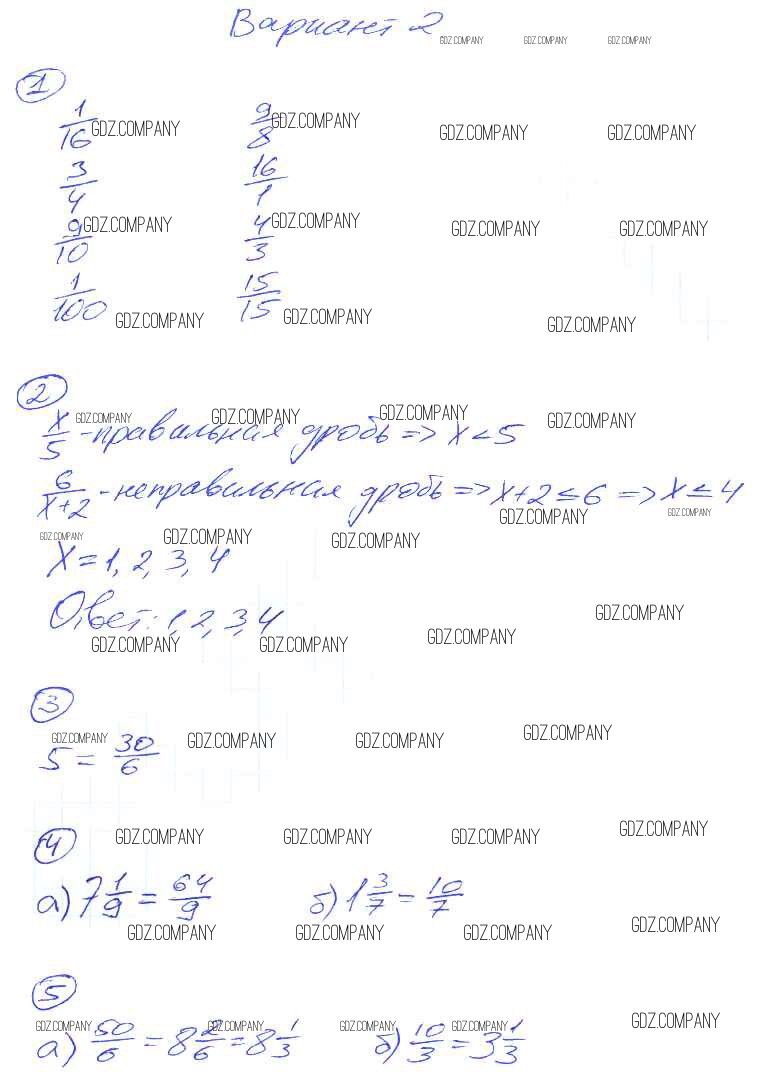 Вариант 2
GDZ.COMPANY GDZ.COMPANY GDZ.COMPANY
1
1/16 GDZ.COMPANY 9/8 GDZ.COMPANY GDZ.COMPANY GDZ.COMPANY
3/4 16/1
9/10 GDZ.COMPANY 4/3 GDZ.COMPANY GDZ.COMPANY GDZ.COMPANY
1/100 GDZ.COMPANY 15/15 GDZ.COMPANY GDZ.COMPANY
2
GDZ.COMPANY GDZ.COMPANY GDZ.COMPANY GDZ.COMPANY
x/5 - правильная дробь => x < 5
6/x+2 - неправильная дробь => x+2 ≤ 6 => x ≤ 4
GDZ.COMPANY GDZ.COMPANY
GDZ.COMPANY GDZ.COMPANY GDZ.COMPANY
x = 1, 2, 3, 4
Ответ: 1, 2, 3, 4
GDZ.COMPANY
GDZ.COMPANY GDZ.COMPANY GDZ.COMPANY
3
GDZ.COMPANY GDZ.COMPANY GDZ.COMPANY GDZ.COMPANY
5 = 30/6
4
GDZ.COMPANY GDZ.COMPANY GDZ.COMPANY GDZ.COMPANY
а) 7 1/9 = 64/9 б) 1 3/7 = 10/7
GDZ.COMPANY GDZ.COMPANY GDZ.COMPANY GDZ.COMPANY
5
GDZ.COMPANY GDZ.COMPANY GDZ.COMPANY GDZ.COMPANY GDZ.COMPANY
а) 50/6 = 8 2/6 = 8 1/3 б) 10/3 = 3 1/3